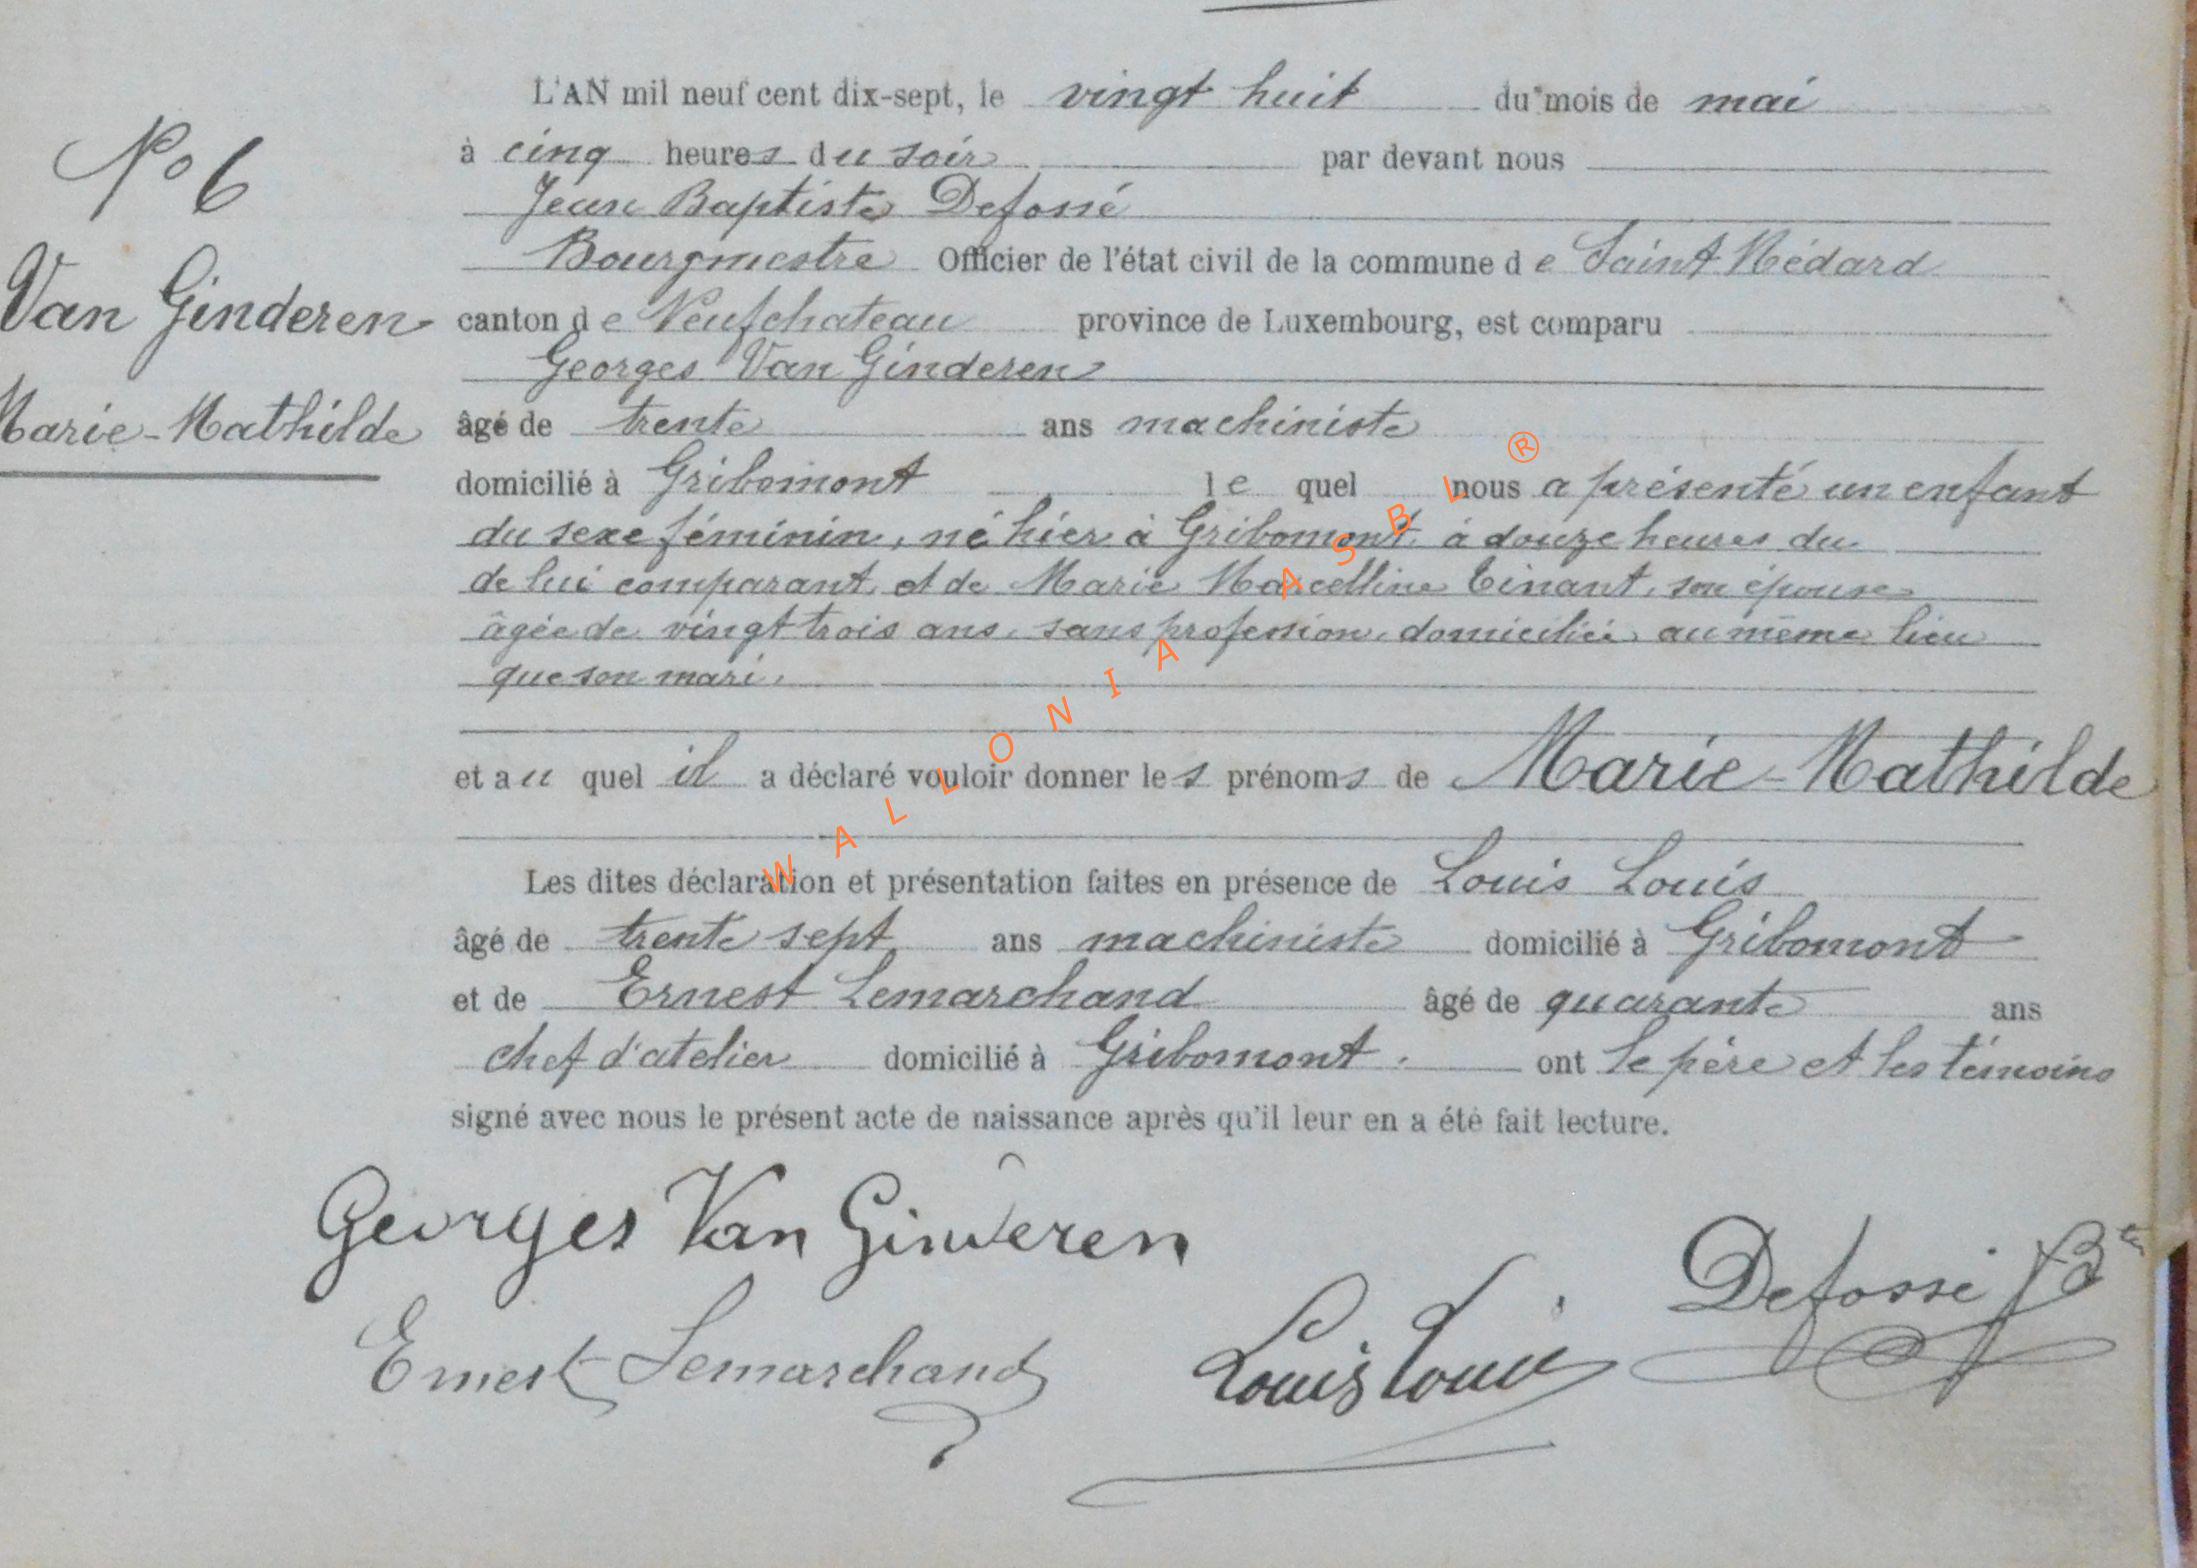 L'AN mil neuf cent dix-sept, le vingt huit du mois de mai
à cinq heures du soir par devant nous
Jean Baptiste Defossé
Bourgmestre Officier de l'état civil de la commune de Saint Médard
canton de Neufchateau province de Luxembourg, est comparu
Georges Van Ginderen
âgé de trente ans machiniste
domicilié à Gribomont le quel nous a présenté un enfant
du sexe féminin, né hier à Gribomont, à douze heures du
de lui comparant et de Marie Marcelline Tinant, son épouse
âgée de vingt trois ans, sans profession, domiciliée au même lieu
que son mari.
et au quel il a déclaré vouloir donner les prénoms de Marie-Mathilde
Les dites déclaration et présentation faites en présence de Louis Louis
âgé de trente sept ans machiniste domicilié à Gribomont
et de Ernest Lemarchand âgé de quarante ans
chef d'atelier domicilié à Gribomont. ont le père et les témoins
signé avec nous le présent acte de naissance après qu'il leur en a été fait lecture.
No 6
Van Ginderen
Marie-Mathilde
Georges Van Ginderen
Ernest Lemarchand
Louis Louis
Defossé JB
WALLONIA ASBL ®